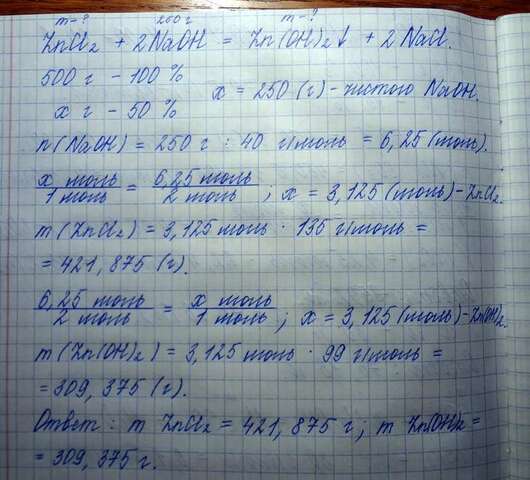 m-? 250 г m-?
ZnCl₂ + 2 NaOH = Zn(OH)₂↓ + 2 NaCl.
500 г - 100 %
x г - 50 %
x = 250 (г) - чистого NaOH.
n(NaOH) = 250 г : 40 г/моль = 6,25 (моль).
x моль / 1 моль = 6,25 моль / 2 моль ; x = 3,125 (моль) - ZnCl₂.
m (ZnCl₂) = 3,125 моль · 135 г/моль =
= 421,875 (г).
6,25 моль / 2 моль = x моль / 1 моль ; x = 3,125 (моль) - Zn(OH)₂.
m (Zn(OH)₂) = 3,125 моль · 99 г/моль =
= 309,375 (г).
Ответ : m ZnCl₂ = 421,875 г ; m Zn(OH)₂ =
= 309,375 г.